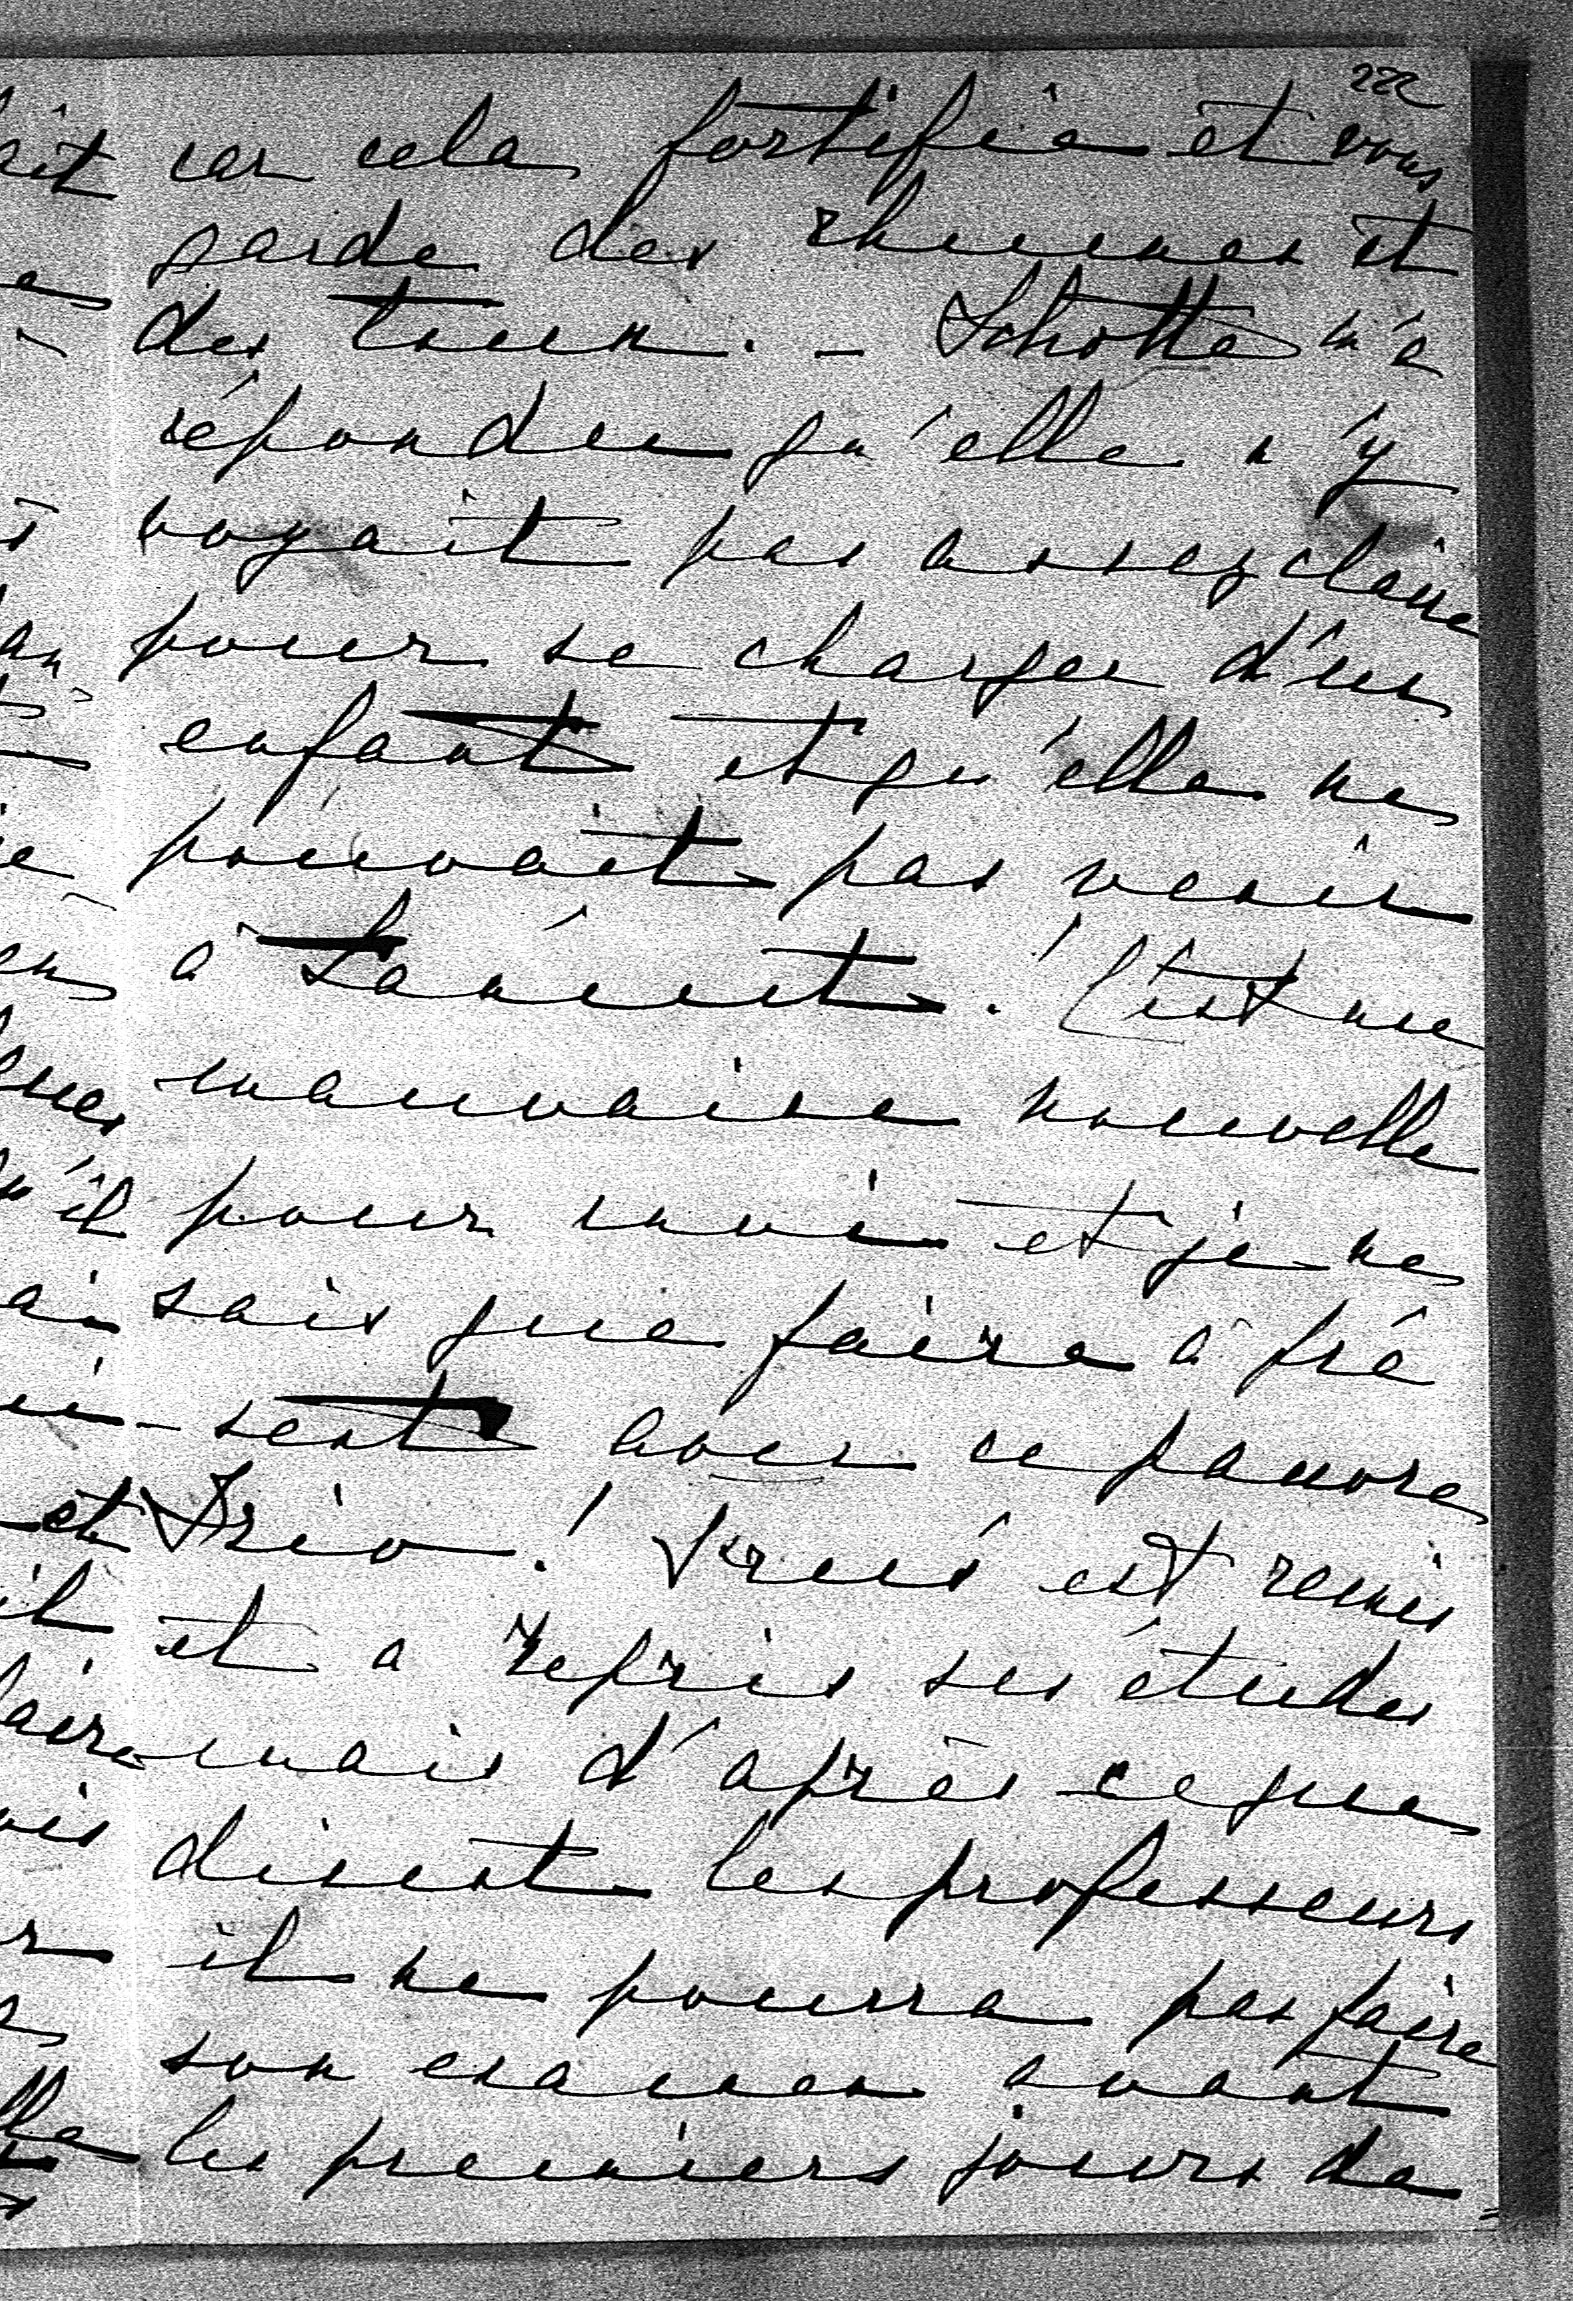 222
car cela fortifie et vous
garde des rhumes et
des toux. - Schotte m'a
répondu qu'elle n'y
voyait pas assez claire
pour se charger d'un
enfant et qu'elle ne
pouvait pas venir
à . C'est une
mauvaise nouvelle
pour moi et je ne
sais que faire à pré
sent avec ce pauvre
! est remis
et a repris ses études
mais d'après ce que
disent les professeurs
il ne pourra pas faire
son examen avant
les premiers jours de